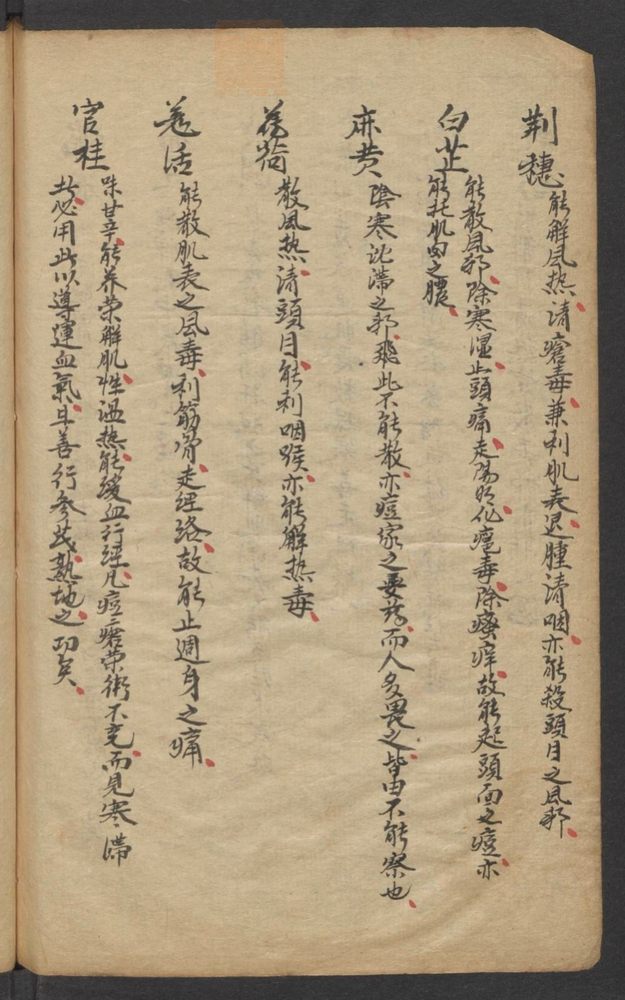 荆穗 能解風热、清瘡毒、兼利肌表、退腫清咽、亦能殺頭目之風邪、
白芷 能散風邪、除寒濕、止頭痛、走陽明、化瘡毒、除瘙痒、故能起頭面之痘、亦
能托肌肉之膿、
麻黄 陰寒沈滞之邪、非此不能散、亦痘家之要药、而人多畏之、皆由不能察也、
薄荷 散風热、清頭目、能利咽喉、亦能解热毒、
羗活 能散肌表之風毒、利筋骨、走经络、故能止週身之痛、
官桂 味甘辛、能养荣解肌、性温热、能缓血行经、凡痘瘡荣衛不充、而見寒滞
者、必用此以導運血氣、且善行參芪熟地之功矣、